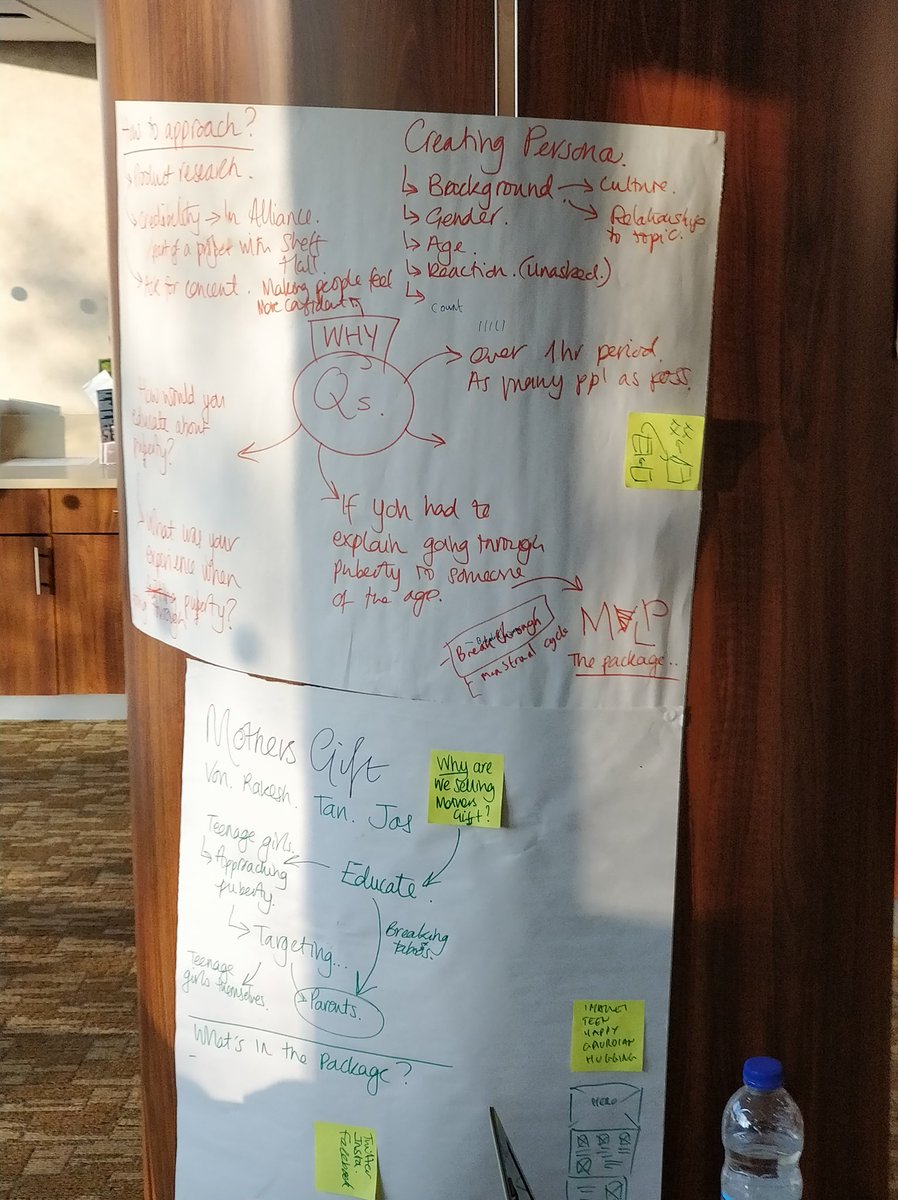 How to approach?
Product research.
Credibility → In Alliance.
Part of a project with Sheff
Hall.
Ask for concent.
Making people feel
More confident
Creating Persona.
Background → Culture.
→ Relationships
to topic.
Gender.
Age.
Reaction. (unasked.)
count
WHY
Q's.
Over 1hr period.
As many ppl as poss.
How would you
educate about
puberty?
What was your
experience when
going through puberty?
If you had to
explain going through
puberty to someone
of the age.
MVP
The package..
Breakthrough
menstrual cycle
Mothers Gift
Von. Rakesh. Tan. Jas
Why are
we selling
Mothers
Gift?
Teenage girls.
Approaching
puberty.
Educate.
Breaking
taboos.
Targeting...
Teenage
girls themselves.
Parents.
What's in the Package?
TEEN
HAPPY
GAURDIAN
HUGGING
HERO
Twitter
Insta.
Facebook